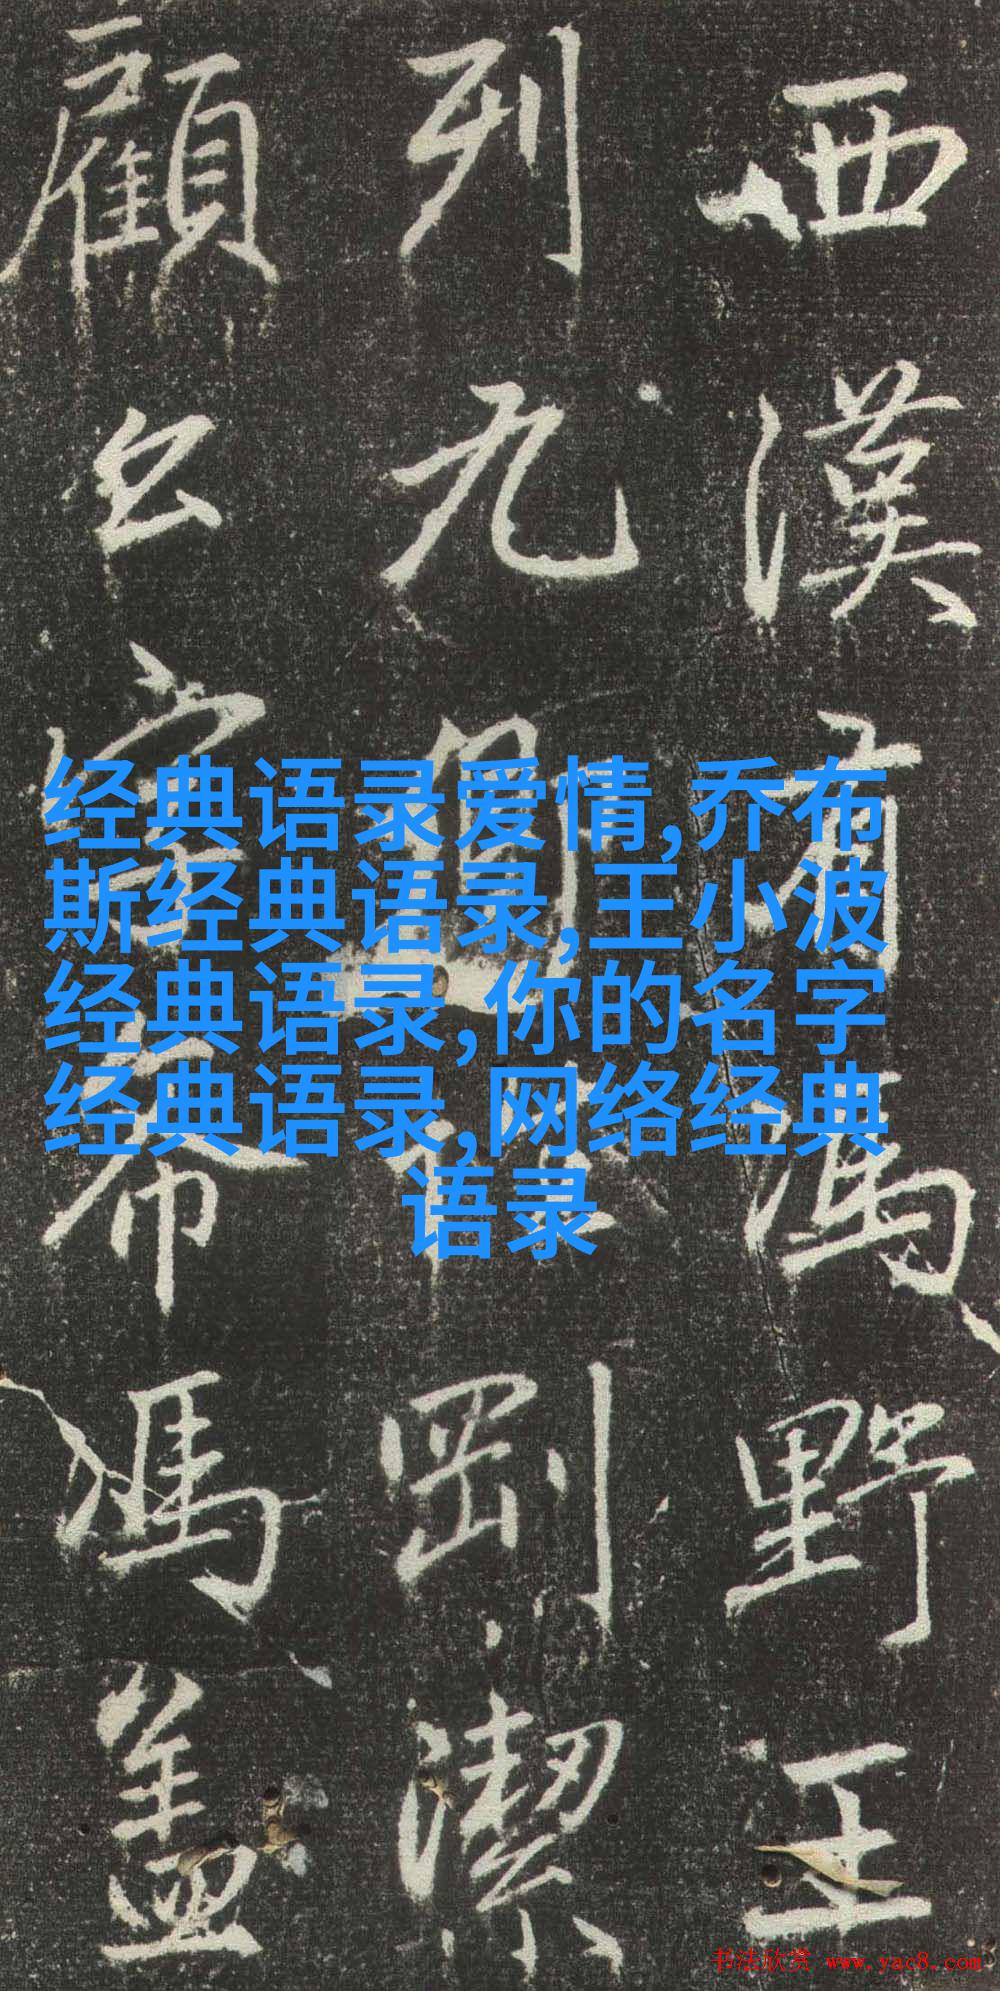 西漢有馮野王
列九剛潔
顧公希馮蓋
经典语录爱情,乔布
斯经典语录,王小波
经典语录,你的名字
经典语录,网络经典
语录
书法欣赏 www.yac8.com